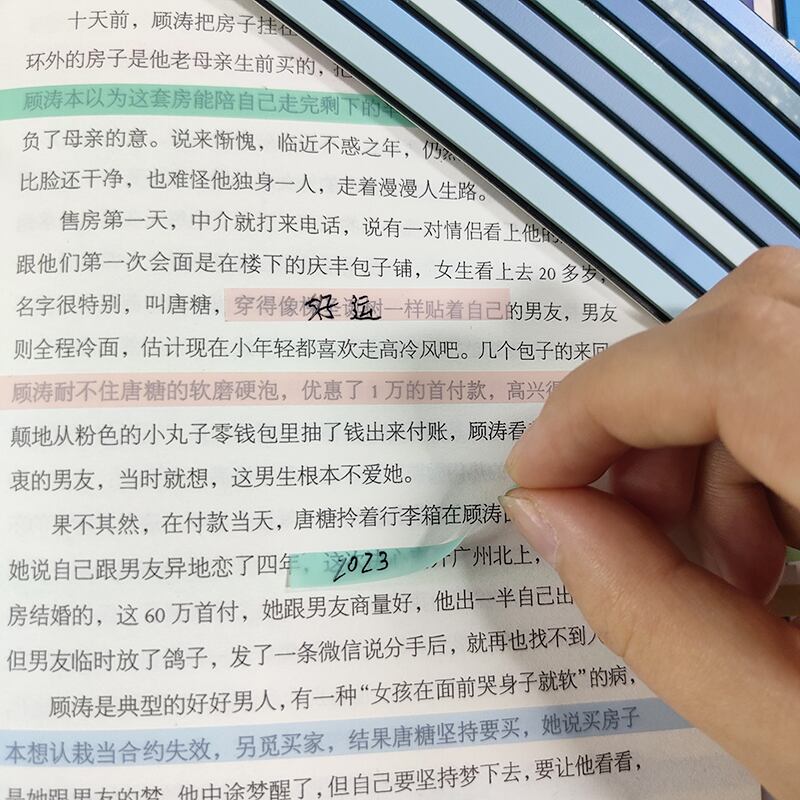 十天前，顾涛把房子挂在
环外的房子是他老母亲生前买的，
顾涛本以为这套房能陪自己走完剩下的
负了母亲的意。说来惭愧，临近不惑之年，仍
比脸还干净，也难怪他独身一人，走着漫漫人生路。
售房第一天，中介就打来电话，说有一对情侣看上他的
跟他们第一次会面是在楼下的庆丰包子铺，女生看上去20多岁，
名字很特别，叫唐糖，穿得像 好运 一样贴着自己的男友，男友
则全程冷面，估计现在小年轻都喜欢走高冷风吧。几个包子的来回
顾涛耐不住唐糖的软磨硬泡，优惠了1万的首付款，高兴得
颠地从粉色的小丸子零钱包里抽了钱出来付账，顾涛看
衷的男友，当时就想，这男生根本不爱她。
果不其然，在付款当天，唐糖拎着行李箱在顾涛
她说自己跟男友异地恋了四年，这 2023 广州北上，
房结婚的，这60万首付，她跟男友商量好，他出一半自己出
但男友临时放了鸽子，发了一条微信说分手后，就再也找不到人
顾涛是典型的好好男人，有一种“女孩在面前哭身子就软”的病，
本想认栽当合约失效，另觅买家，结果唐糖坚持要买，她说买房子
是她跟男友的梦，他中途梦醒了，但自己要坚持梦下去，要让他看看，